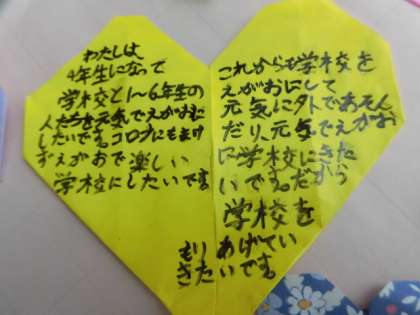 わたしは
4年生になって
学校と1〜6年生の
人たちを元気でえがおに
したいです。コロナにもまけ
ずえがおで楽しい
学校にしたいです。
これからも学校を
えがおにして
元気に外であそん
だり、元気でえがお
に学校にきた
いです。だから
学校を
もりあげてい
きたいです。